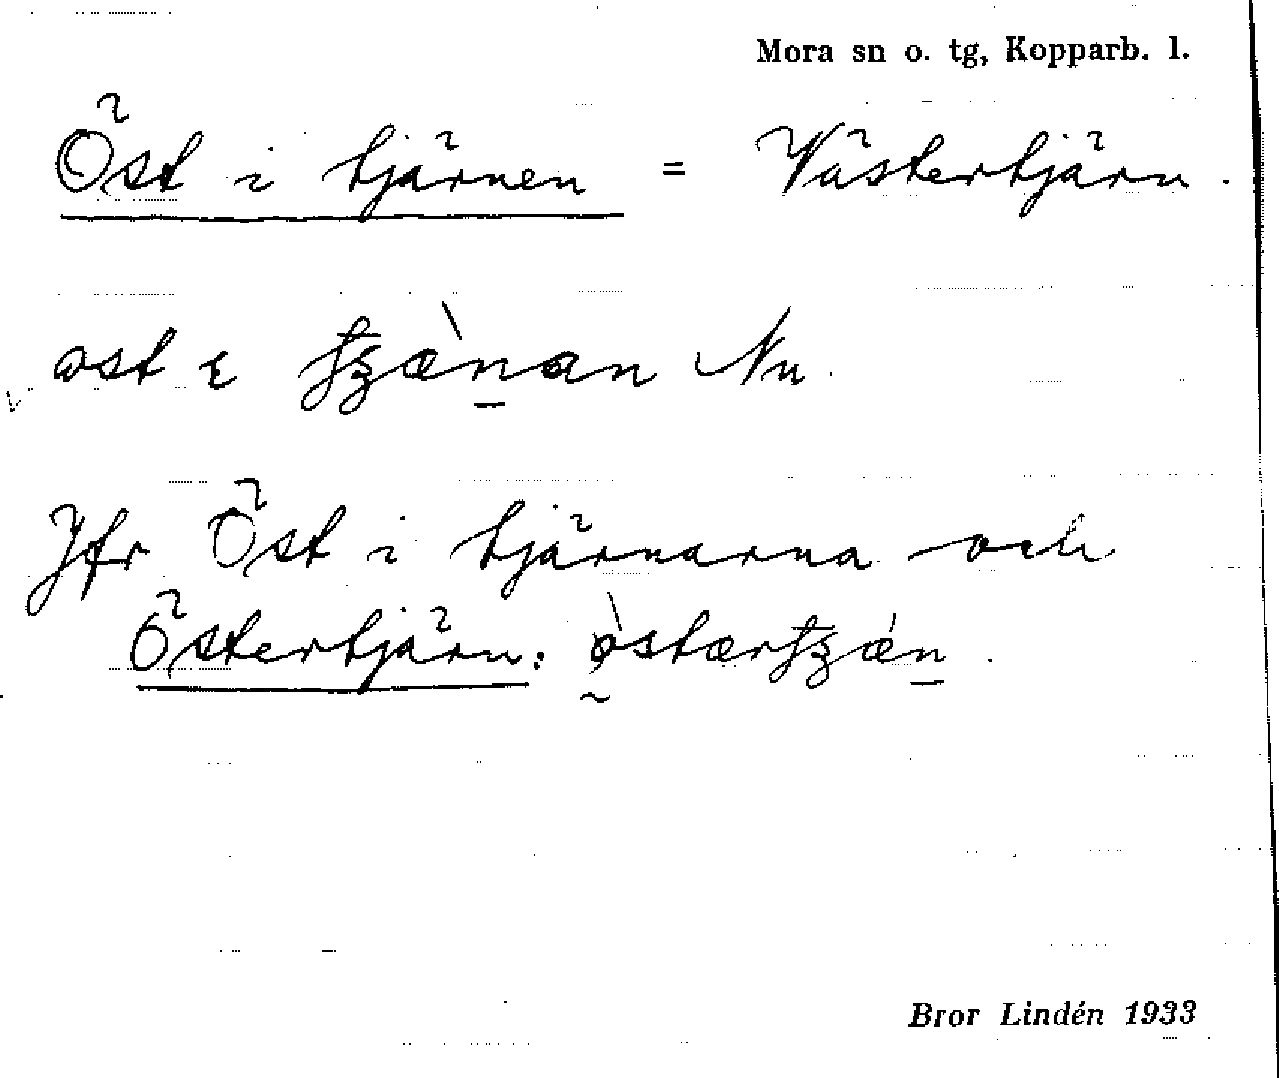 Mora sn o. tg, Kopparb. l.
Öst i tjärnen = Västertjärn.
Nu.
Jfr Öst i tjärnarna och
Östertjärn:
Bror Lindén 1933